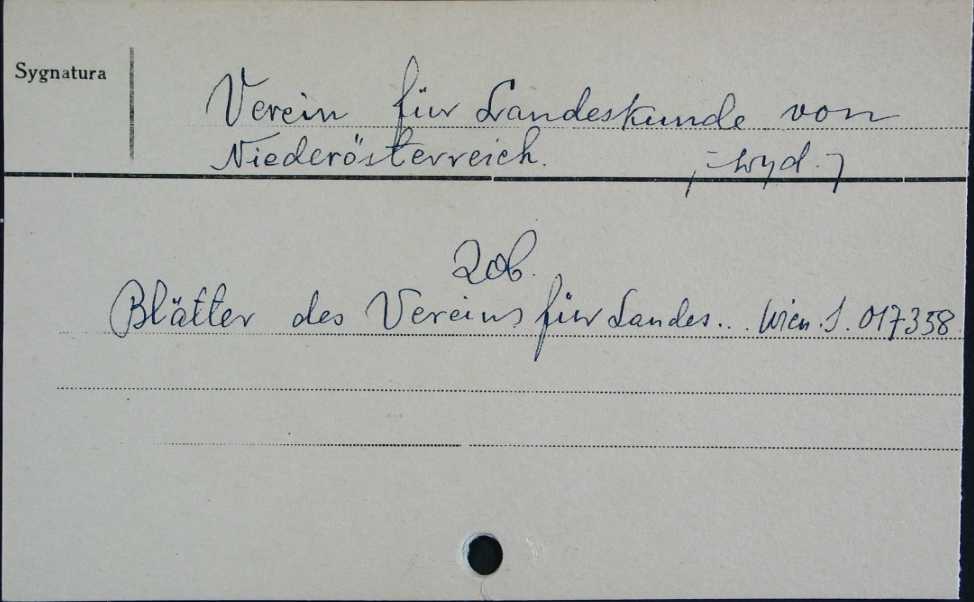 Sygnatura
Verein für Landeskunde von
Niederösterreich. /-wyd.7
Zob.
Blätter des Vereins für Landes... Wien. S. 017338